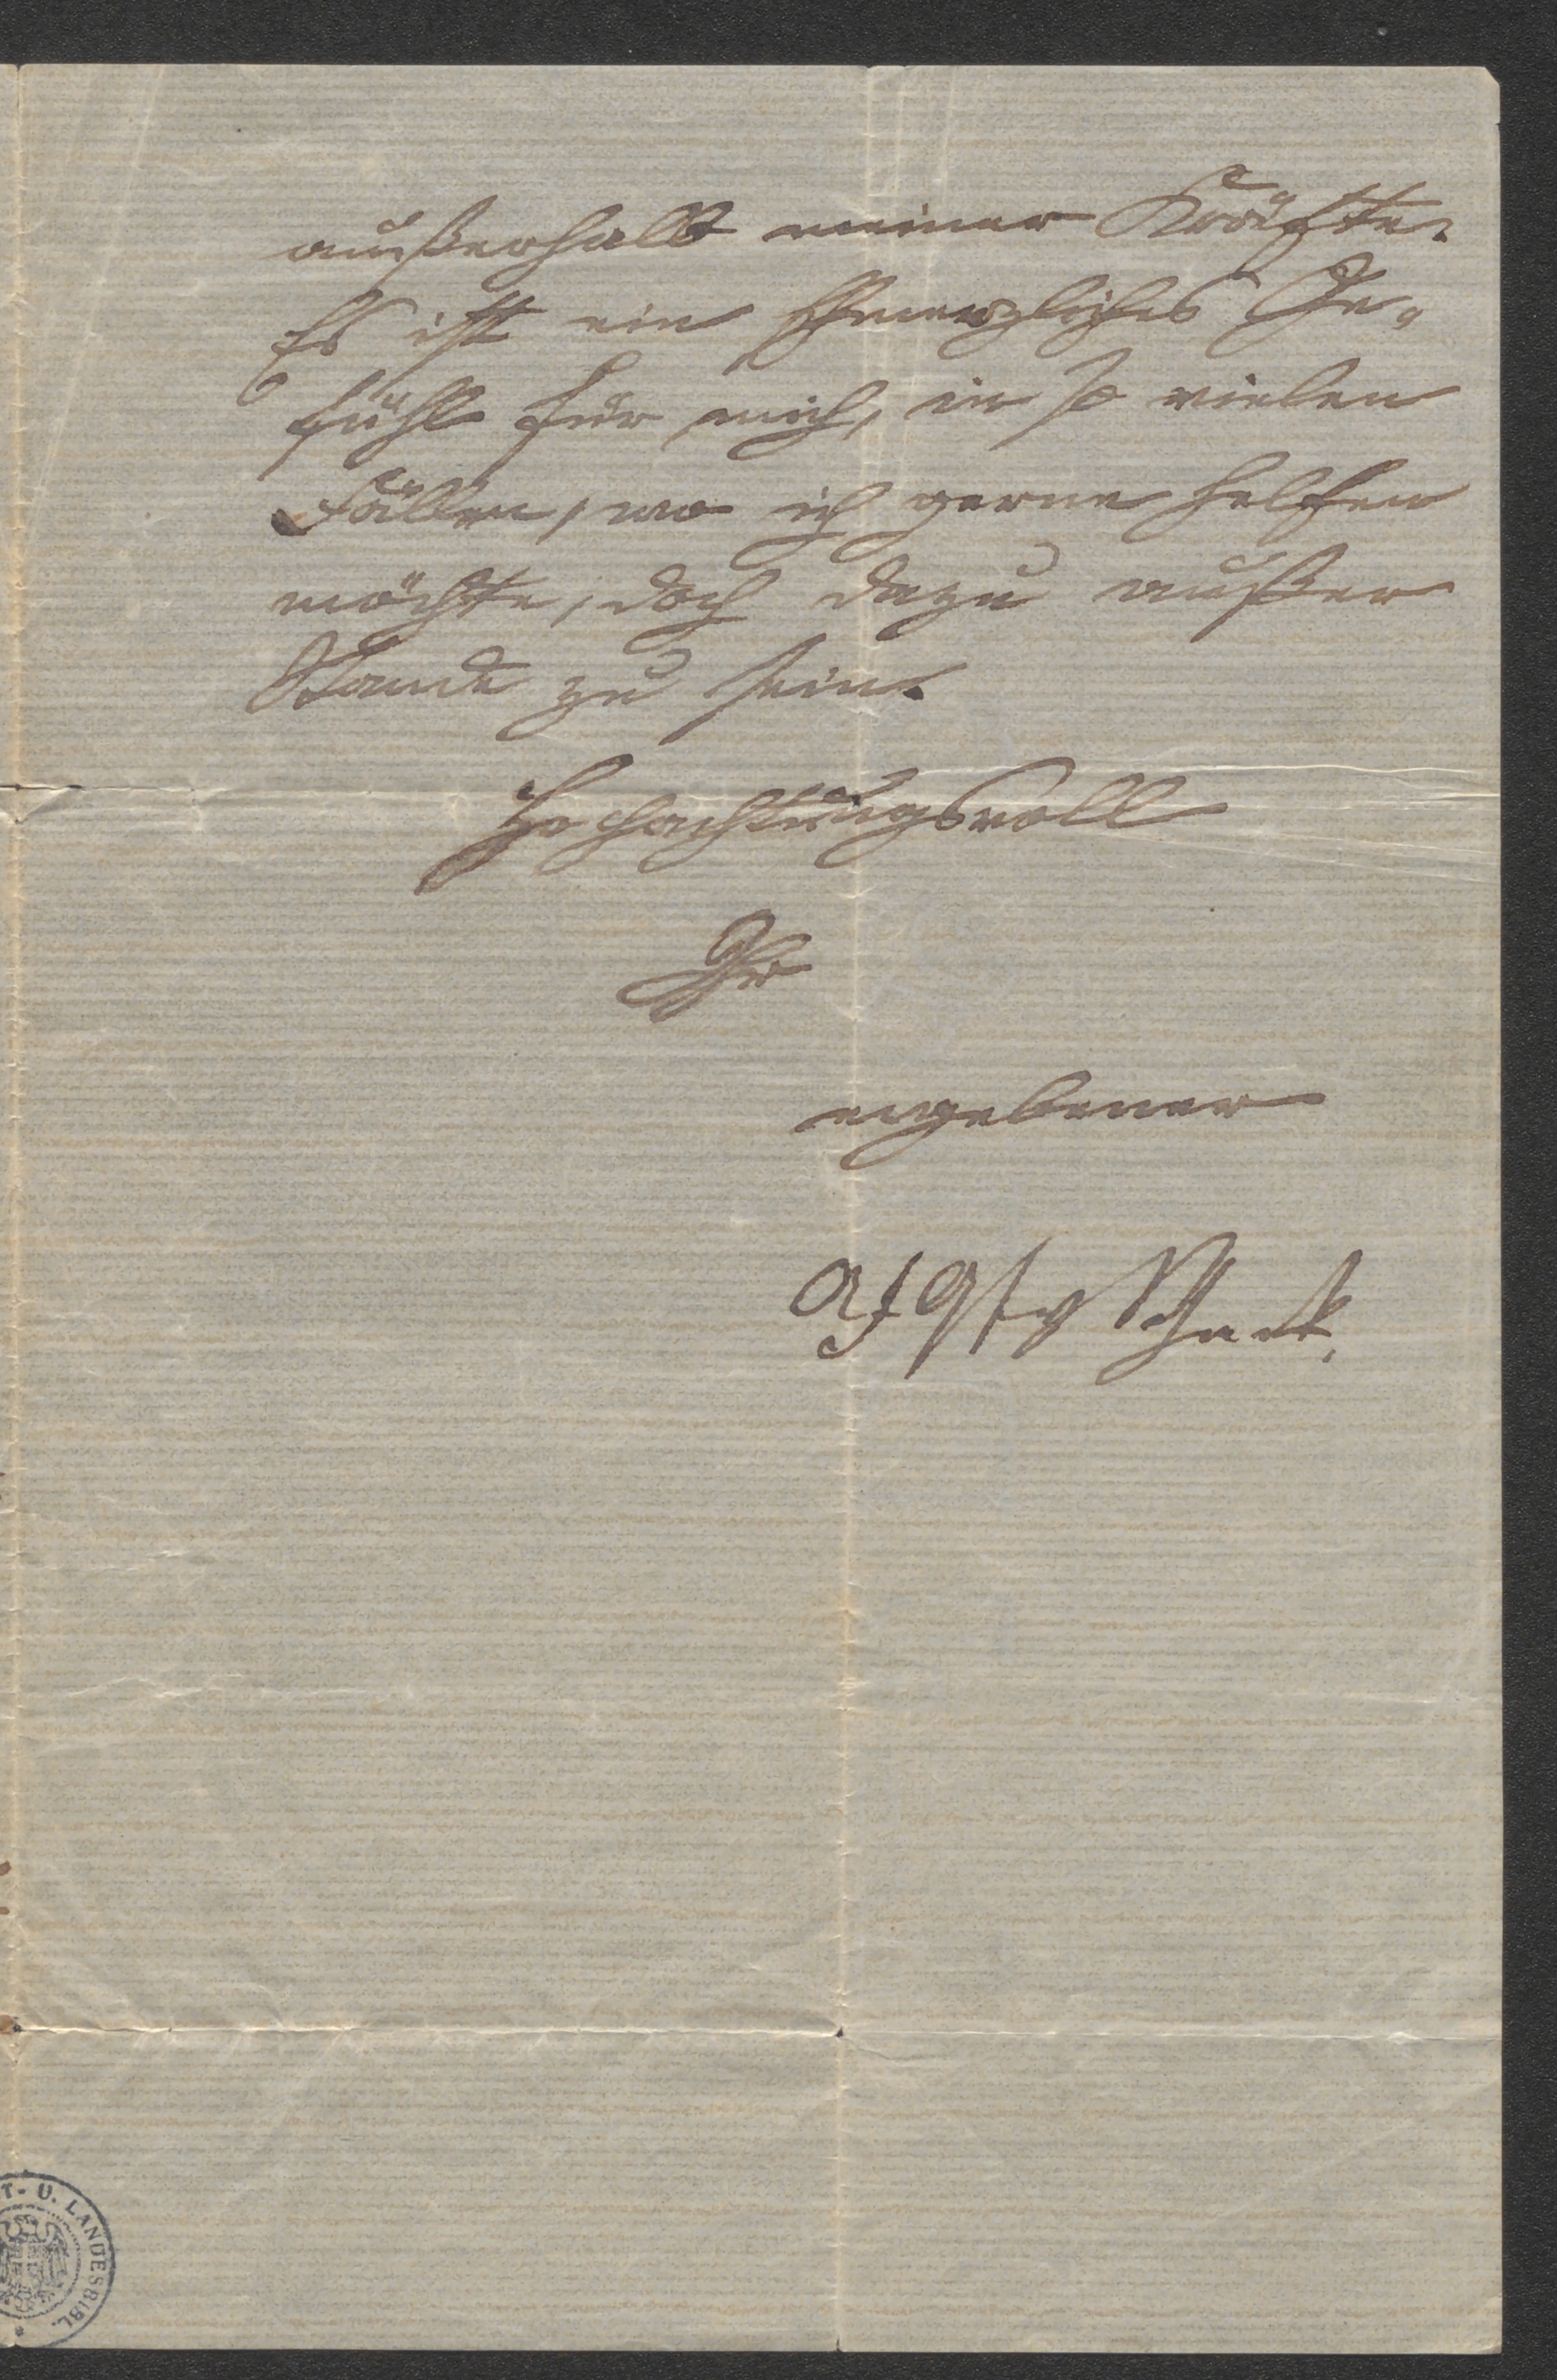 außerhalb meiner Kräfte.
Es ist ein schmerzliches Ge-
fühl für mich, in so vielen
Fällen, wo ich gerne helfen
möchte, doch dazu außer
Stande zu sein.
Hochachtungsvoll
Ihr
ergebener
A F Gf v Schack.
T- U. LANDESBIBL.